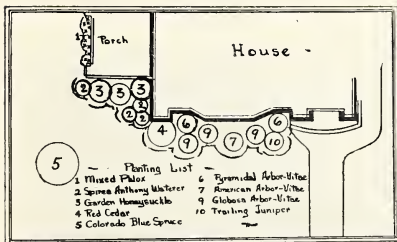 Porch
House
1
2 3 3 3
2
2 2
4 6 9 9 7 9 6 10
5
Planting List
1 Mixed Phlox
2 Spirea Anthony Waterer
3 Garden Honeysuckle
4 Red Cedar
5 Colorado Blue Spruce
6 Pyramidal Arbor-Vitae
7 American Arbor-Vitae
9 Globosa Arbor-Vitae
10 Trailing Juniper